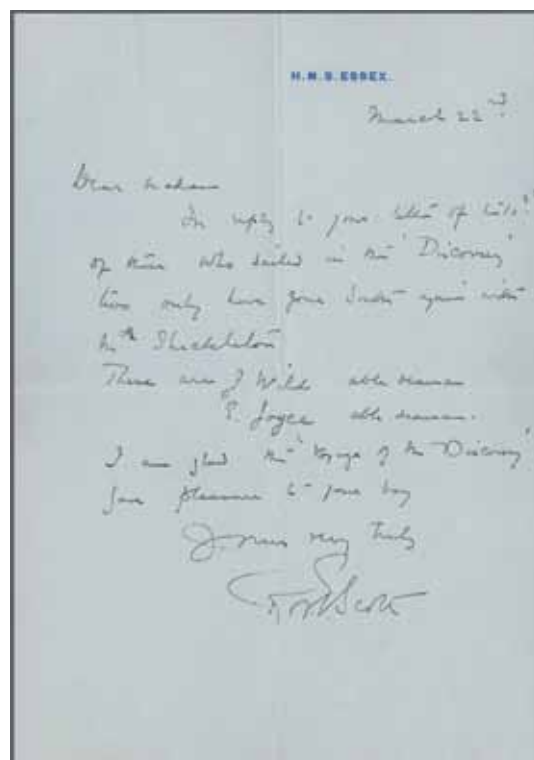 H.M.S. ESSEX.
March 22nd
Dear Madam
In reply to your letter of
of those who sailed in the 'Discovery'
two only have gone South again with
Mr Shackleton
These are F Wild able seaman
E. Joyce able seaman.
I am glad the 'Voyage of the Discovery'
gave pleasure to your boy
Yours very truly
R Scott